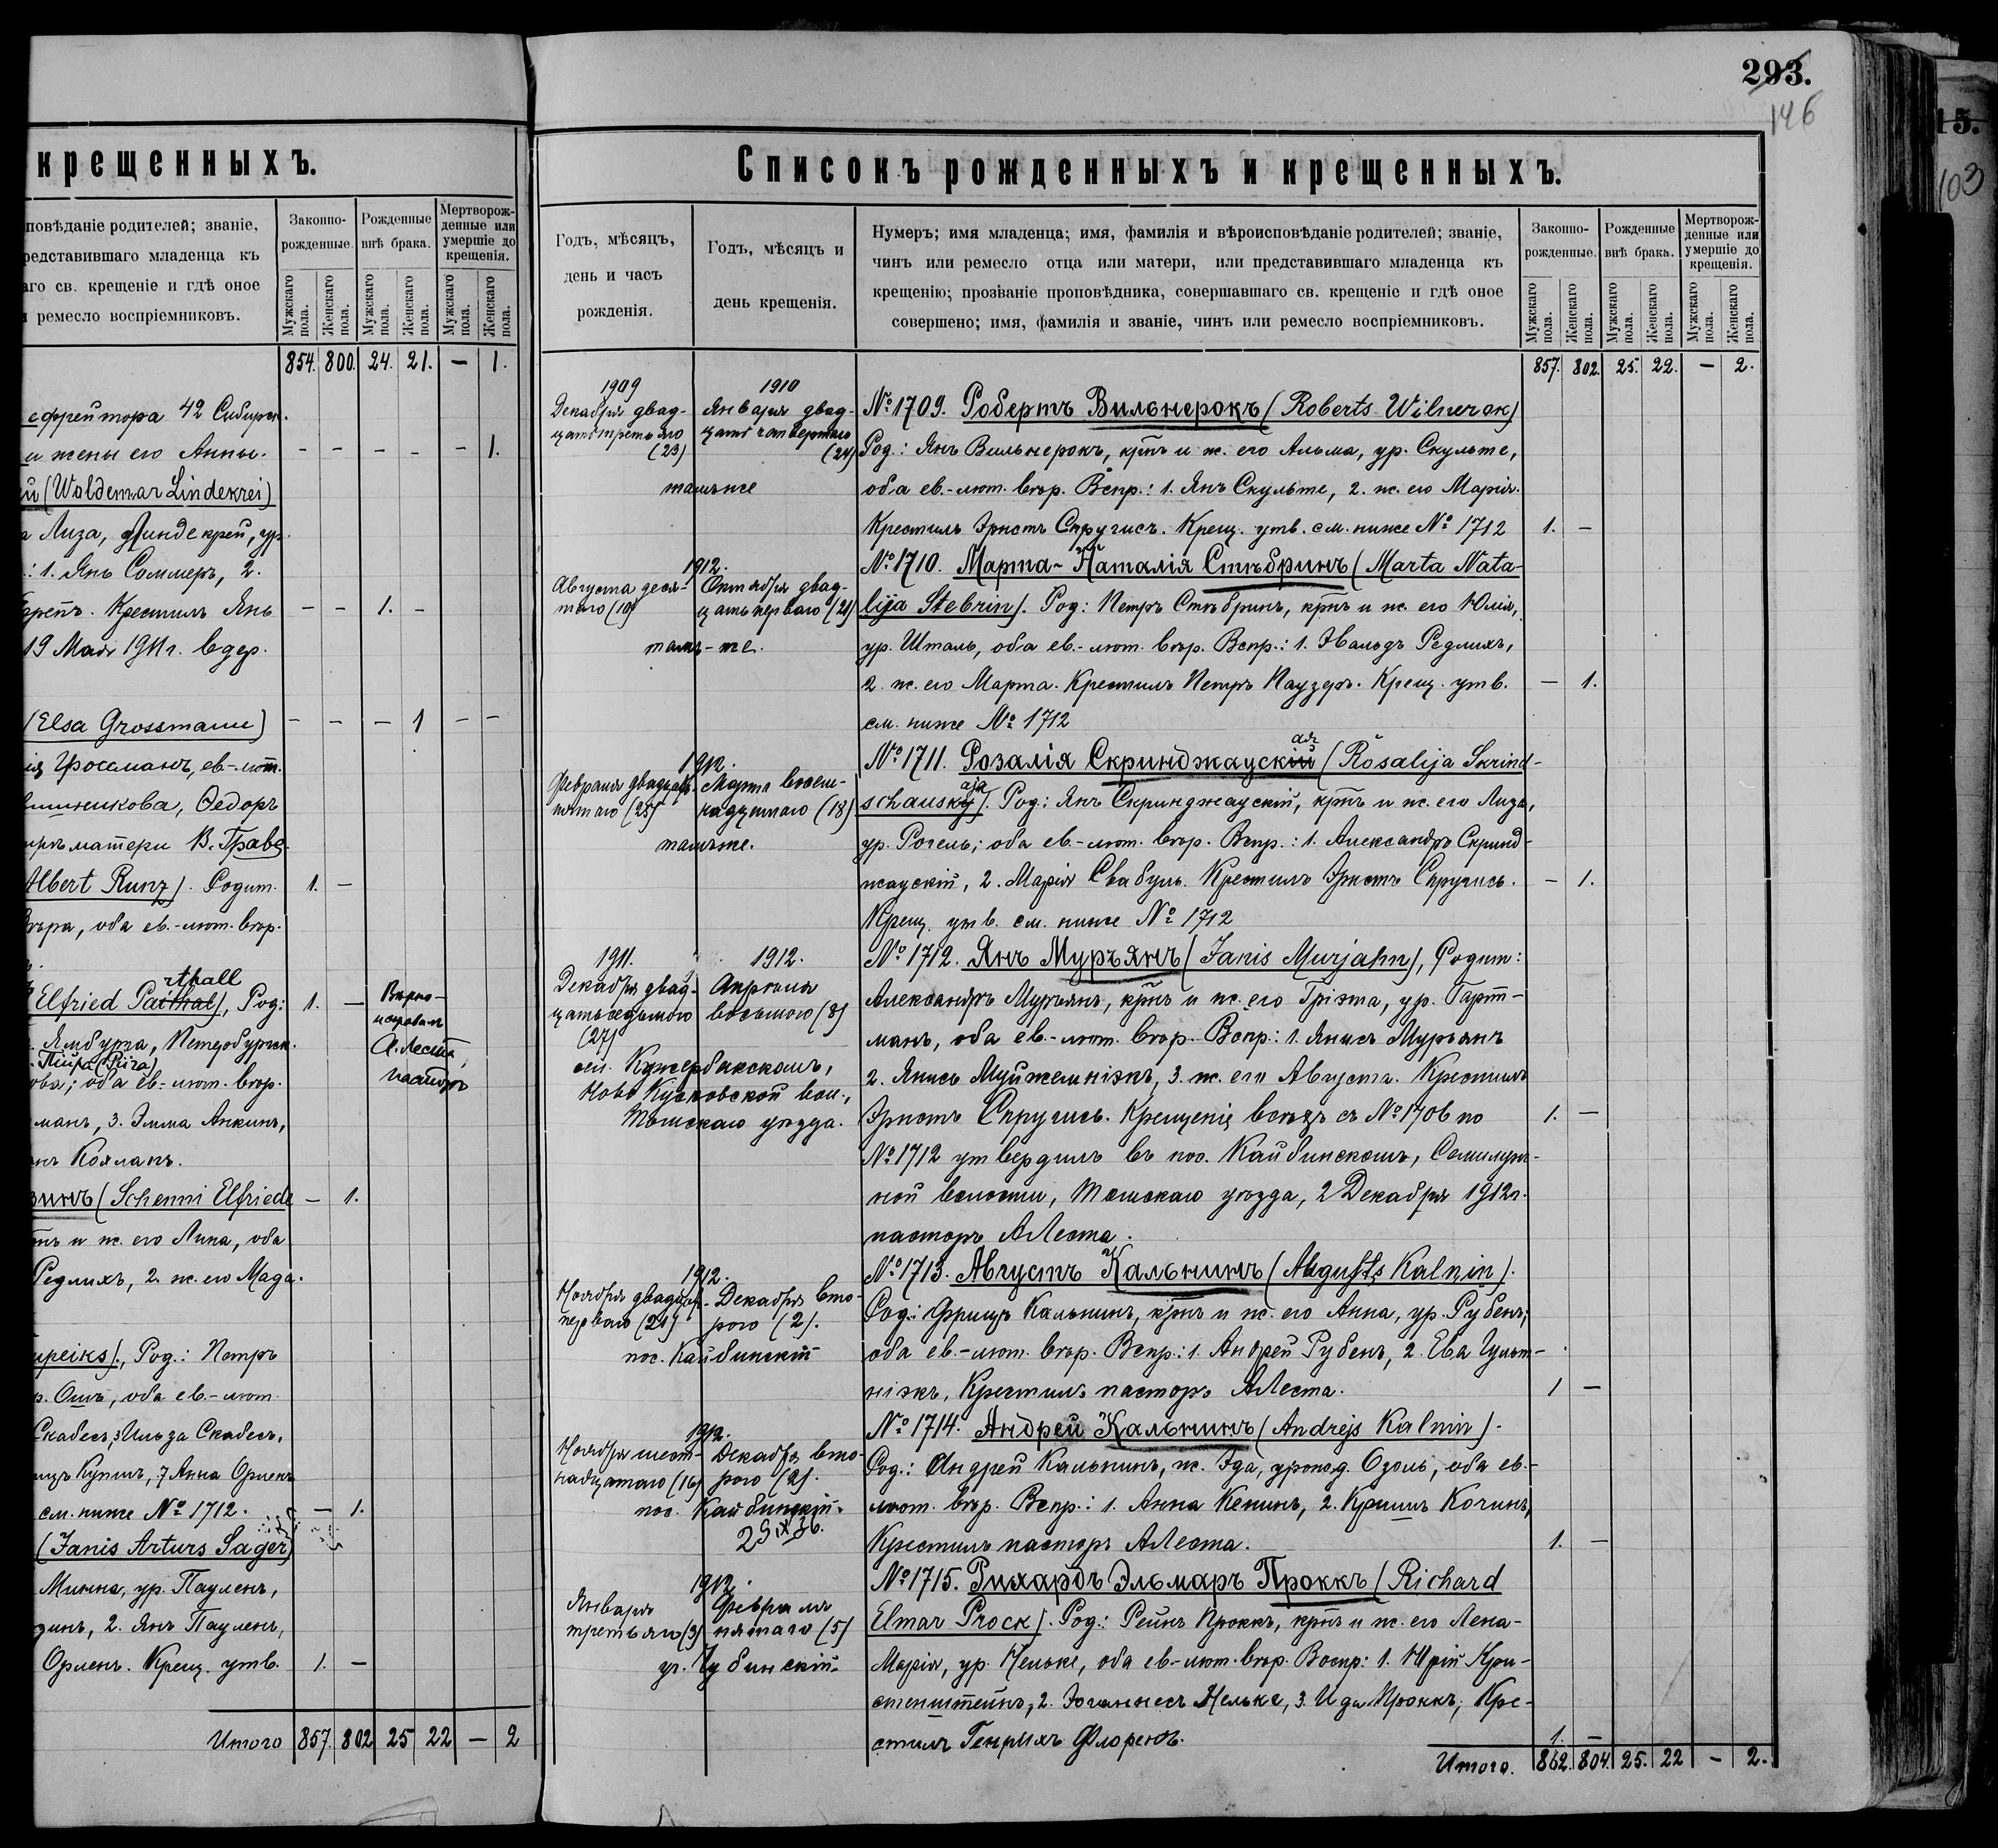 293.
146
15.
103
крещенныхъ.
повѣданіе родителей; званіе,
редставившаго младенца къ
аго св. крещеніе и гдѣ оное
и ремесло воспріемниковъ.
Законно-рожденные.
Рожденные внѣ брака.
Мертворож-денные или умершіе до крещенія.
Мужскаго пола.
Женскаго пола.
Мужскаго пола.
Женскаго пола.
Мужскаго пола.
Женскаго пола.
854. 800. 24. 21. — 1.
ефрейтора 42 Сибирск.
и жены его Анны. - - - - - 1.
(Woldemar Lindekrei)
Лиза, Линдекрей, ур.
: 1. Янъ Соммеръ, 2.
Крестилъ Янъ - - 1. -
19 Мая 1911 г. въ дер.
(Elsa Grossmann) - - - 1 - -
Гроссманъ, ев.-лют.
Ѳедоръ
матери В. Граве.
Albert Runz). Родит. 1. -
оба ев.-лют. вѣр.
rthall
Elfried Parthal), Род: 1. —
Вѣрно-
исправилъ
А. Леста
пасторъ
Ямбурга, Петербургск.
(Riga)
оба ев.-лют. вѣр.
манъ, 3. Эмма Анкинъ,
(Schenni Elfriede — 1.
и ж. его Лина, оба
Редлихъ, 2. ж. его Мада.
upeiks)., Род.: Петръ
Ошъ, оба ев.-лют.
Скабесъ, 3 Ильза Скабесъ,
7 Анна Орленъ
см. ниже № 1712. — 1.
(Janis Arturs Sager)
Минна, ур. Пауленъ,
2. Янъ Пауленъ,
Орленъ. Крещ. утв. 1. —
Итого 857. 802 25 22 — 2
Списокъ рожденныхъ и крещенныхъ.
Годъ, мѣсяцъ,
день и часъ
рожденія.
Годъ, мѣсяцъ и
день крещенія.
Нумеръ; имя младенца; имя, фамилія и вѣроисповѣданіе родителей; званіе,
чинъ или ремесло отца или матери, или представившаго младенца къ
крещенію; прозваніе проповѣдника, совершавшаго св. крещеніе и гдѣ оное
совершено; имя, фамилія и званіе, чинъ или ремесло воспріемниковъ.
Законно-рожденные.
Рожденные внѣ брака.
Мертворож-денные или умершіе до крещенія.
Мужскаго пола.
Женскаго пола.
Мужскаго пола.
Женскаго пола.
Мужскаго пола.
Женскаго пола.
857. 802. 25. 22. — 2.
1909
Декабря двад-
цать третьяго
(23)
1910
Января двад-
цать четвертаго
(24)
тамъ же
№ 1709. Робертъ Вильнерокъ (Roberts Wilnerok)
Род.: Янъ Вильнерокъ, крнъ и ж. его Альма, ур. Скульте,
оба ев.-лют. вѣр. Вспр.: 1. Янъ Скульте, 2. ж. его Марія.
Крестилъ Эрнстъ Спругисъ. Крещ. утв. см. ниже № 1712 1. —
1912.
Августа деся-
таго (10)
Октября двад-
цать перваго (21)
тамъ-же.
№ 1710. Марта-Наталія Стѣбринъ (Marta Nata-
lija Stebrin). Род: Петръ Стѣбринъ, крнъ и ж. его Юлія,
ур. Шталь, оба ев.-лют. вѣр. Вспр.: 1. Эвальдъ Редлихъ,
2. ж. его Марта. Крестилъ Петръ Паузеръ. Крещ. утв. — 1.
см. ниже № 1712
1912.
Февраля двадцать
пятаго (25)
Марта восем-
надцатаго (18)
тамъ же.
ая
№ 1711. Розалія Скринджаускій (Rosalija Skrind-
aja
schausky). Род: Янъ Скринджаускій, крнъ и ж. его Лиза,
ур. Рогель; оба ев.-лют. вѣр. Вспр.: 1. Александръ Скринд-
жаускій, 2. Марія Свабуль. Крестилъ Эрнстъ Спругисъ. — 1.
Крещ. утв. см. ниже № 1712
1911.
Декабря двад-
цать седьмого
(27)
1912.
Апрѣля
восьмого (8)
Ново Кусковской вол.,
Томскаго уѣзда.
№ 1712. Янъ Муръянъ (Janis Murjahn), Родит:
Александръ Муръянъ, крнъ и ж. его Гріэта, ур. Гарт-
манъ, оба ев.-лют. вѣр. Вспр: 1. Янисъ Муръянъ
2. Янисъ Муйжемніэкъ, 3. ж. его Августа. Крестилъ
Эрнстъ Спругисъ. Крещеніе всѣхъ съ № 1706 по 1. —
№ 1712 утвердилъ въ пос. Кайбинскомъ, Семилуж-
ной волости, Томскаго уѣзда, 2 Декабря 1912 г.
пасторъ А Леста.
1912.
Ноября двадцать
перваго (21)
Декабря вто-
рого (2).
пос. Кайбинскій
№ 1713. Августъ Кальнинъ (Augusts Kalnin).
Род: Фрицъ Кальнинъ, крнъ и ж. его Анна, ур. Рубенъ;
оба ев.-лют. вѣр. Вспр: 1. Андрей Рубенъ, 2. Ева Гульт-
ніэкъ, Крестилъ пасторъ А Леста. 1 —
1912.
Ноября шест-
надцатаго (16)
Декабря вто-
рого (2).
пос. Кайбинскій.
№ 1714. Андрей Кальнинъ (Andrejs Kalnin).
Род.: Андрей Кальнинъ, ж. Эда, урожд. Озоль, оба ев.-
лют. вѣр. Вспр.: 1. Анна Кепинъ, 2. Кришъ Кочинъ,
Крестилъ пасторъ А Леста. 1. —
1912.
Января
третьяго (3)
Февраля
пятаго (5)
уч. Чубинскій
№ 1715. Рихардъ Эльмаръ Проккъ (Richard
Elmar Prock). Род: Рейнъ Проккъ, крнъ и ж. его Лена-
Марія, ур. Нельке, оба ев-лют. вѣр. Воспр: 1. Юрій Кри-
стенштейнъ, 2. Іоганнесъ Нельке, 3. Ида Проккъ, Кре-
стилъ Генрихъ Флорень. 1. —
Итого. 862. 804. 25. 22 — 2.